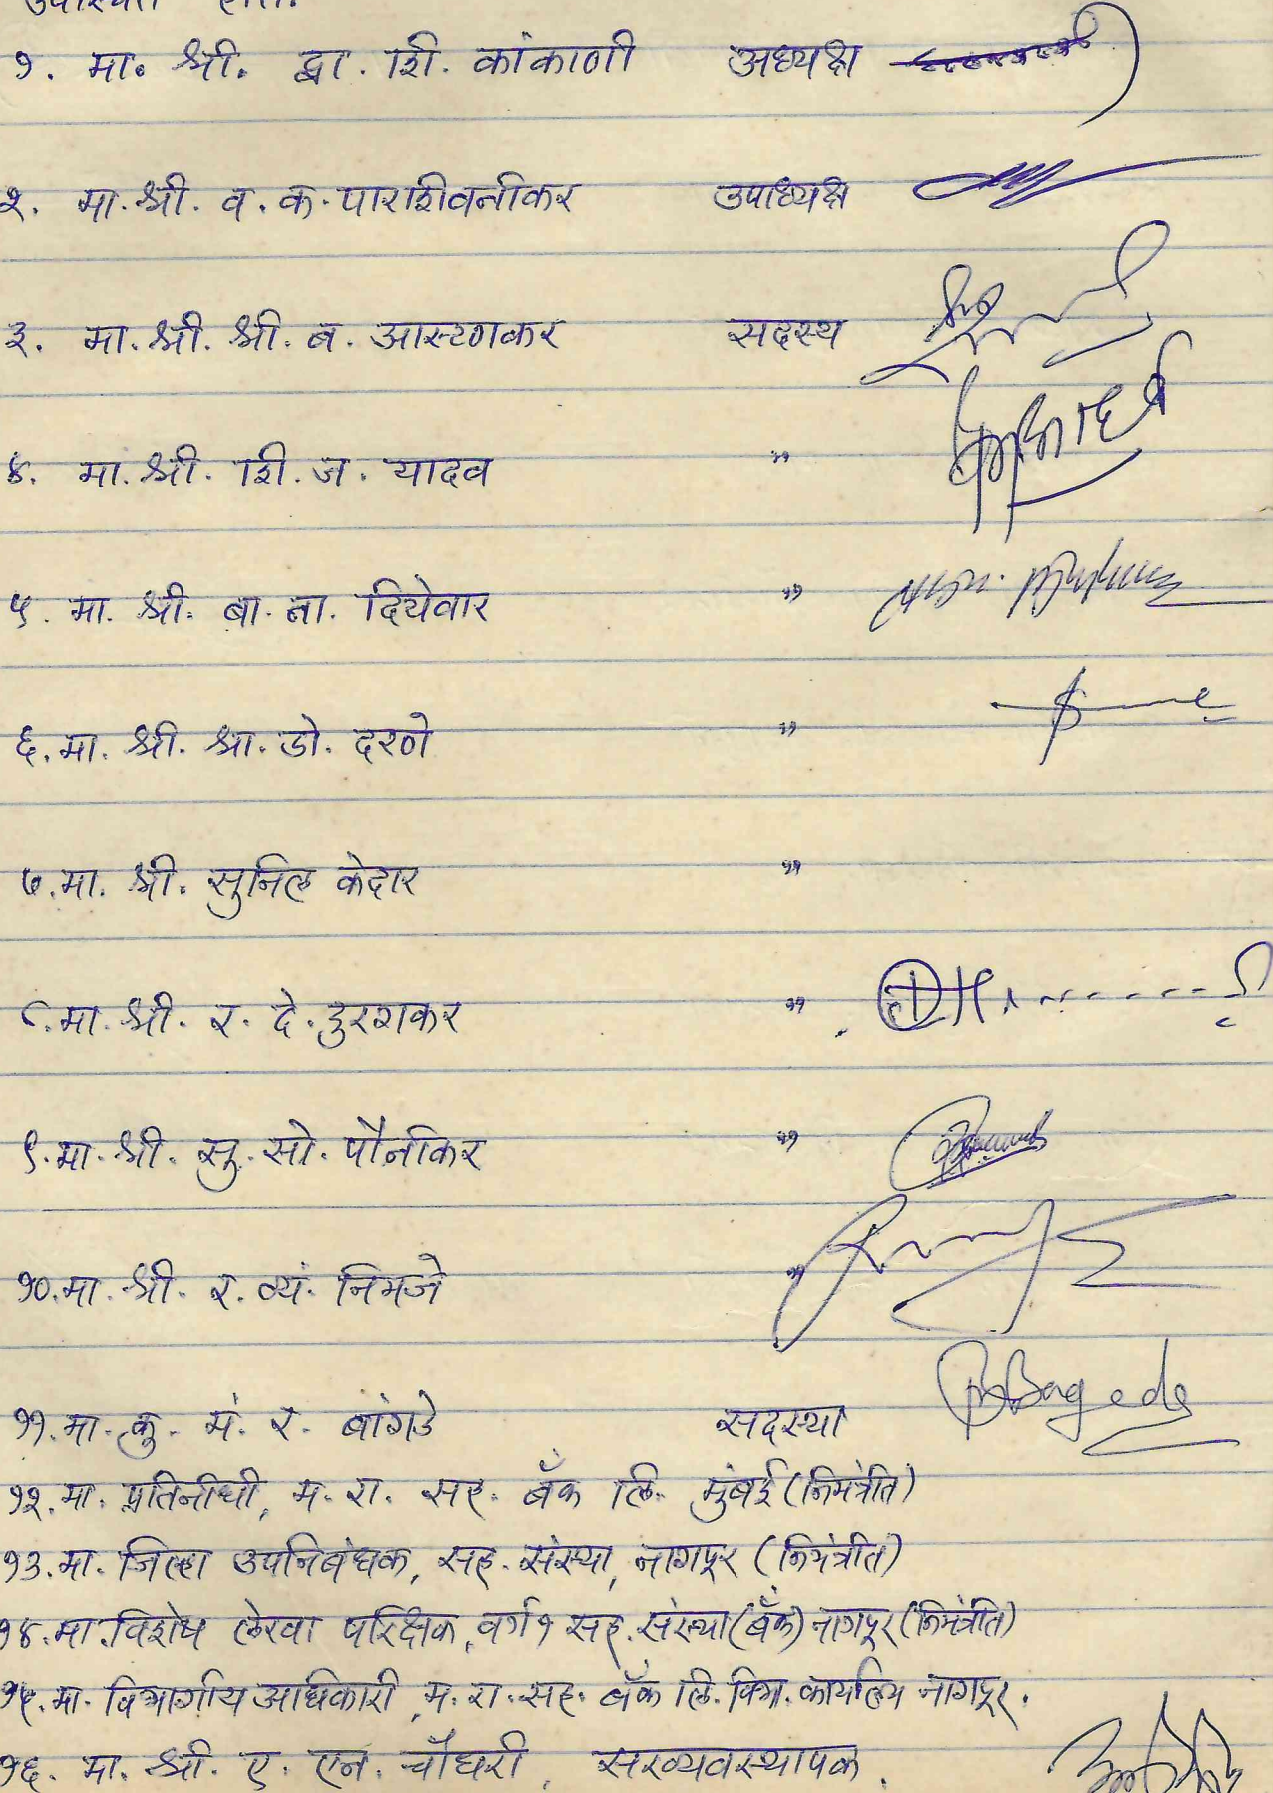 उपस्थित होते.
१. मा. श्री. द्वा. शि. कांकाणी अध्यक्ष
२. मा. श्री. व. क. पाराशिवनीकर उपाध्यक्ष
३. मा. श्री. श्री. ब. आस्टणकर सदस्य
४. मा. श्री. शि. ज. यादव "
५. मा. श्री. बा. ना. दियेवार "
६. मा. श्री. श्रा. डो. दरणे "
७. मा. श्री. सुनिल केदार "
८. मा. श्री. र. दे. दुरुगकर "
९. मा. श्री. सु. सो. पौनीकर "
१०. मा. श्री. र. व्यं. निमजे "
११. मा. कु. मं. र. बांगडे सदस्या
१२. मा. प्रतिनीधी, म. रा. सह. बँक लि. मुंबई (निमंत्रीत)
१३. मा. जिल्हा उपनिबंधक, सह. संस्था, नागपूर (निमंत्रीत)
१४. मा. विशेष लेखा परिक्षक, वर्ग १ सह. संस्था (बँक) नागपूर (निमंत्रीत)
१५. मा. विभागीय अधिकारी, म. रा. सह. बँक लि. विभा. कार्यालय नागपूर.
१६. मा. श्री. ए. एन. चौधरी, सरव्यवस्थापक.